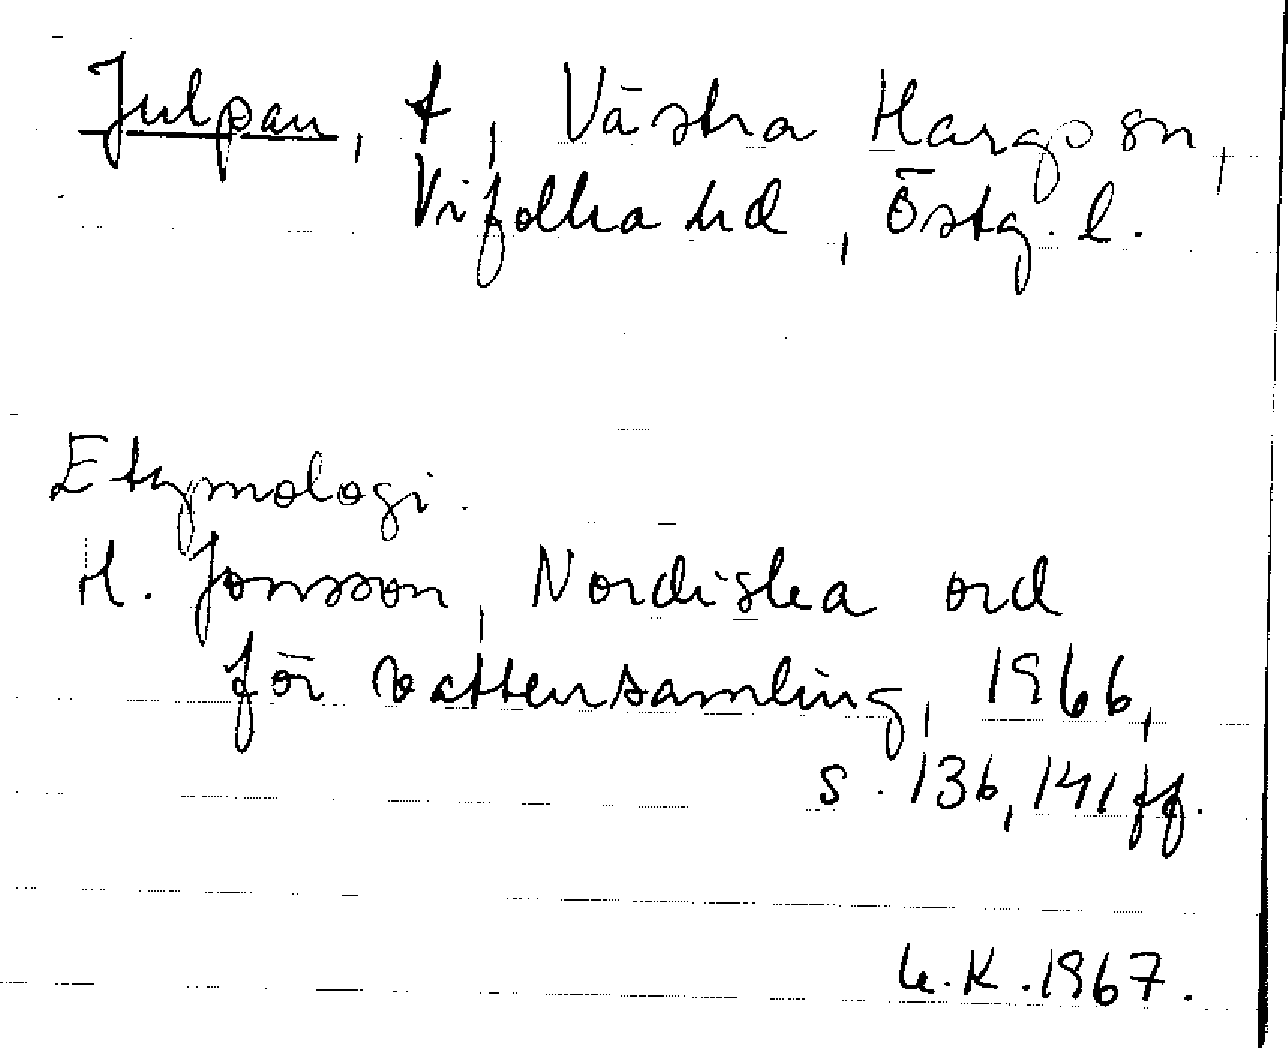 Julpan, t, Västra Hargs sn,
Vifolka hd, Östg. l.
Etymologi.
H. Jonsson, Nordiska ord
för vattensamling, 1966,
s. 136, 141 ff.
K. 1967.